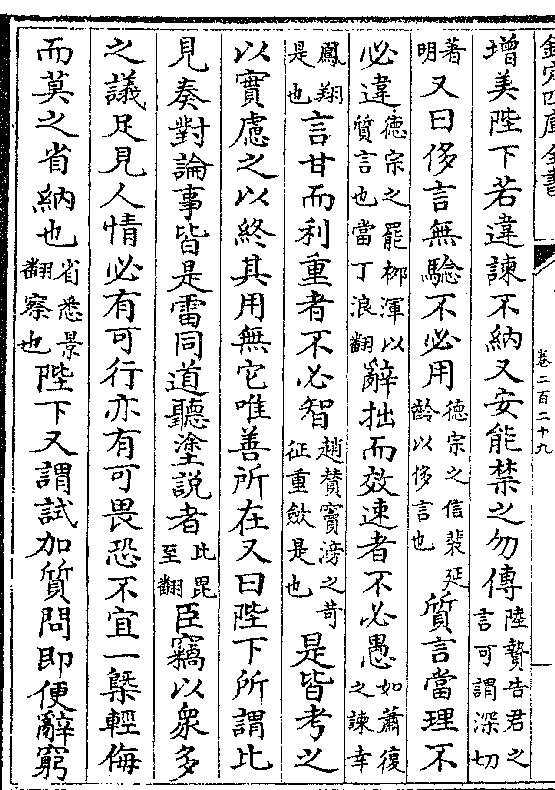 欽定四庫全書
卷二百二十九
增美陛下若違諫不納又安能禁之勿傳陸贄告君之言可謂深切
著明又曰侈言無驗不必用德宗之信裴延齡以侈言也質言當理不
必違德宗之罷柳渾以質言也當丁浪翻辭拙而效速者不必愚如蕭復之諫幸
鳳翔是也言甘而利重者不必智趙贊竇滂之苛征重斂是也是皆考之
以實慮之以終其用無它唯善所在又曰陛下所謂比
見奏對論事皆是雷同道聽塗說者比毘至翻臣竊以衆多
之議足見人情必有可行亦有可畏恐不宜一槩輕侮
而莫之省納也省悉景翻察也陛下又謂試加質問即便辭窮